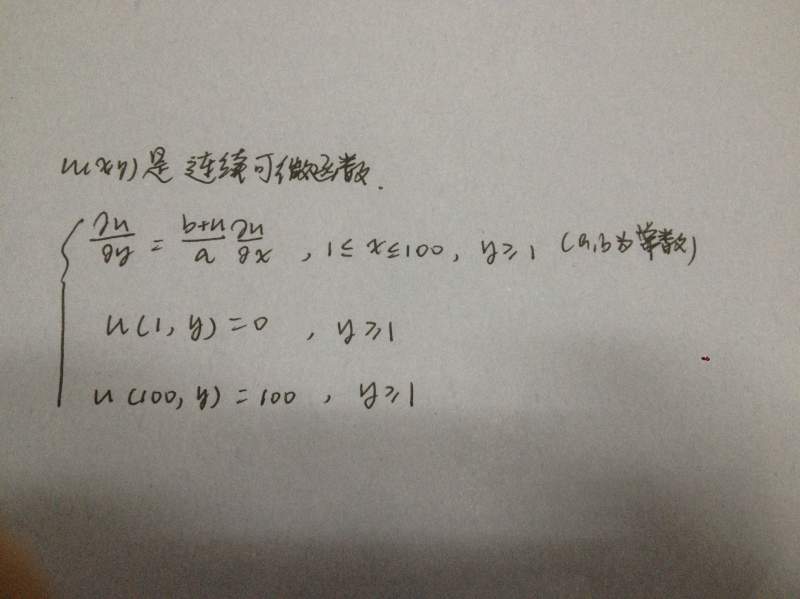 u(x,y)是连续可微函数.
{ ∂u/∂y = (b+u)/a ∂u/∂x , 1≤x≤100, y≥1 (a,b为常数)
u(1,y)=0 , y≥1
u(100,y)=100 , y≥1